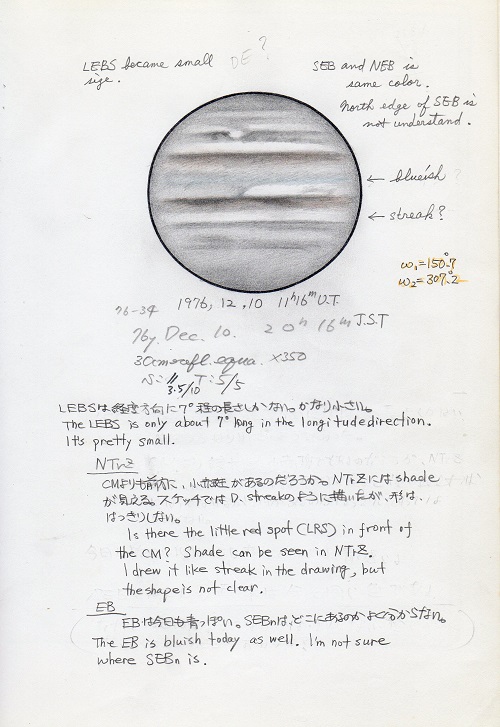 LEBS became small
size.
DE?
SEB and NEB is
same color.
North edge of SEB is
not understand.
← blueish
← streak?
ω₁=150.°7
ω₂=307.°2
76-34
1976, 12, 10 11ʰ16ᵐ U.T.
76y. Dec. 10. 20ʰ 16ᵐ J.S.T
30cm refl. equa. ×350
S: 3.5/10 T: 5/5
LEBSは経度方向に7°程の長さしかない。かなり小さい。
The LEBS is only about 7° long in the longitude direction.
It's pretty small.
NTrZ
CMよりも前方に、小赤斑があるのだろうか。NTrZにはshade
が見える。スケッチではD. streakのように描いたが、形は、
はっきりしない。
Is there the little red spot (LRS) in front of
the CM? Shade can be seen in NTrZ.
I drew it like streak in the drawing, but
the shape is not clear.
EB
EBは今日も青っぽい。SEBnは、どこにあるのかよく分からない。
The EB is bluish today as well. I'm not sure
where SEBn is.